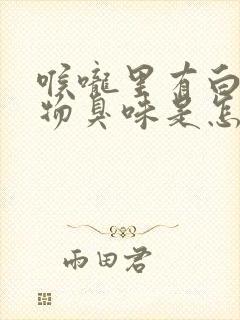 喉咙里有白
物臭味是怎
雨田君